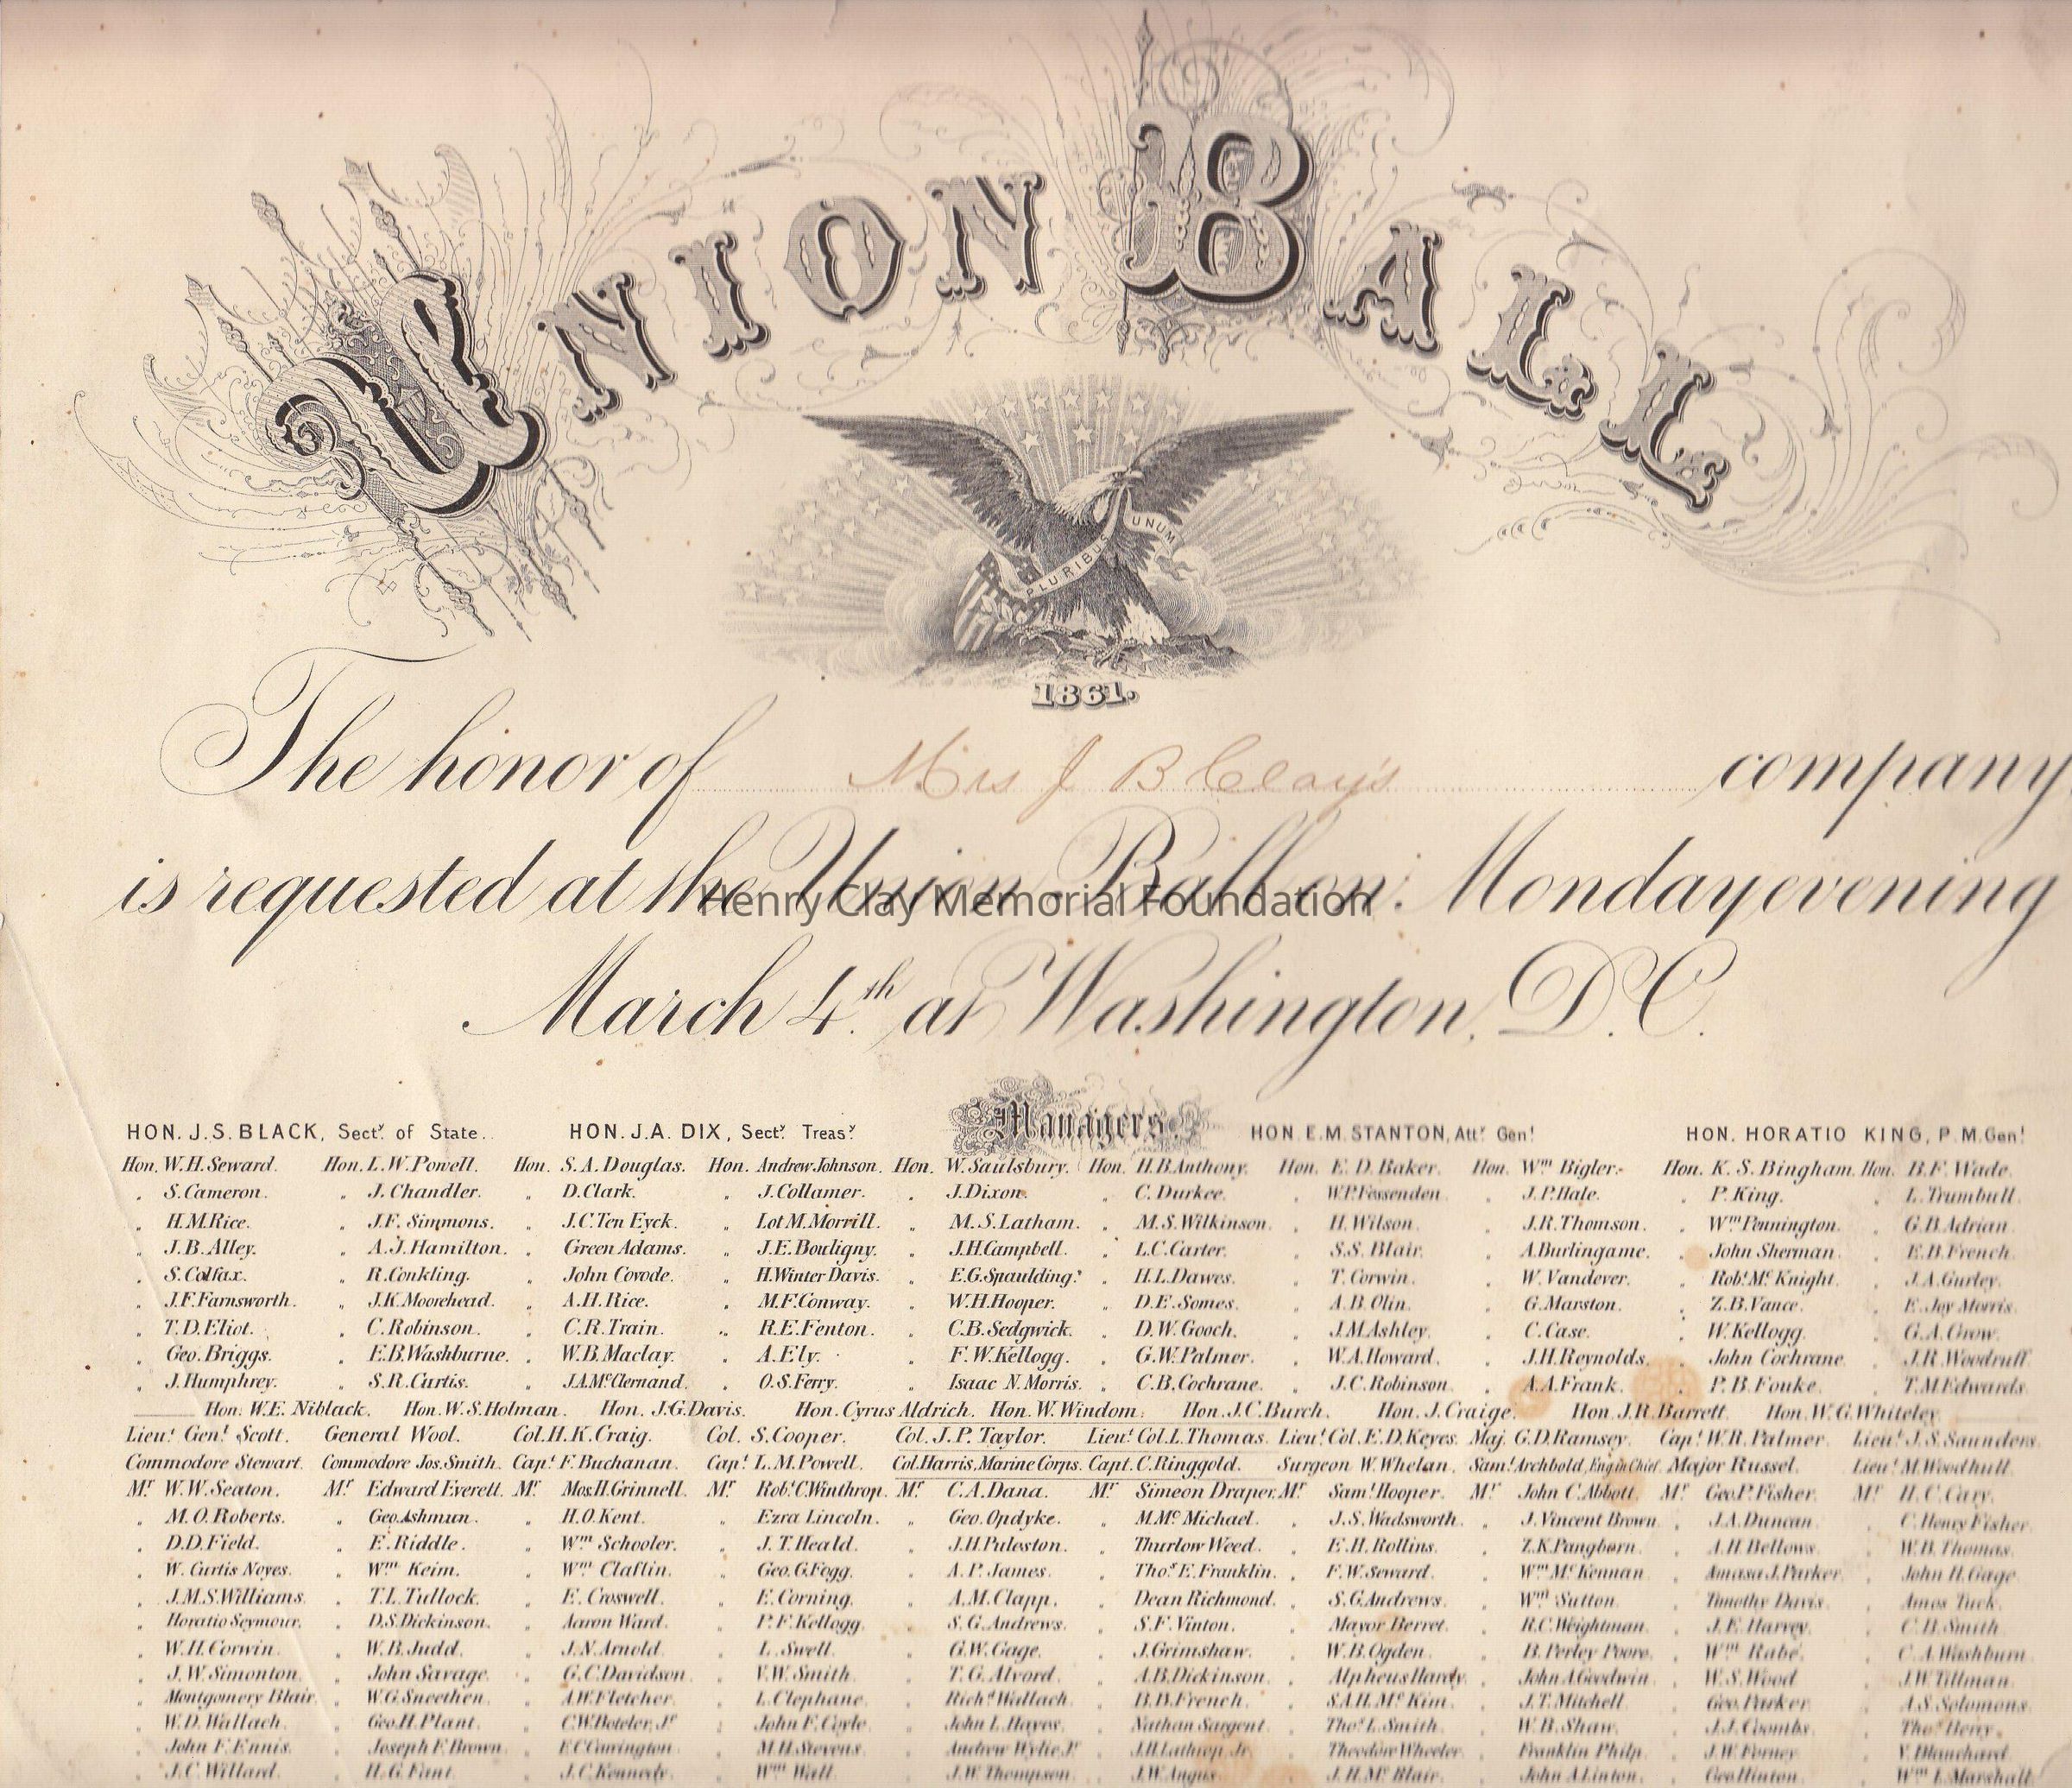 UNION BALL
PLURIBUS UNUM
1861.
The honor of Mrs J B Clay's company
is requested at the Union Ball on: Monday evening
Henry Clay Memorial Foundation
March 4th at Washington, D.C.
Managers.
HON. J.S. BLACK, Secty. of State. HON. J.A. DIX, Secty. Treasy. HON. E.M. STANTON, Atty. Genl. HON. HORATIO KING, P.M. Genl.
Hon. W.H. Seward. Hon. L.W. Powell. Hon. S.A. Douglas. Hon. Andrew Johnson. Hon. W. Saulsbury. Hon. H.B. Anthony. Hon. E.D. Baker. Hon. Wm Bigler. Hon. K.S. Bingham. Hon. B.F. Wade.
" S. Cameron. " J. Chandler. " D. Clark. " J. Collamer. " J. Dixon. " C. Durkee. " W.P. Fessenden. " J.P. Hale. " P. King. " L. Trumbull.
" H.M. Rice. " J.F. Simmons. " J.C. Ten Eyck. " Lot M. Morrill. " M.S. Latham. " M.S. Wilkinson. " H. Wilson. " J.R. Thomson. " Wm Pennington. " G.B. Adrian.
" J.B. Alley. " A.J. Hamilton. " Green Adams. " J.E. Bouligny. " J.H. Campbell. " L.C. Carter. " S.S. Blair. " A. Burlingame. " John Sherman. " E.B. French.
" S. Colfax. " R. Conkling. " John Covode. " H. Winter Davis. " E.G. Spaulding. " H.L. Dawes. " T. Corwin. " W. Vandever. " Robt. McKnight. " J.A. Gurley.
" J.F. Farnsworth. " J.K. Moorehead. " A.H. Rice. " M.F. Conway. " W.H. Hooper. " D.E. Somes. " A.B. Olin. " G. Marston. " Z.B. Vance. " E. Joy Morris.
" T.D. Eliot. " C. Robinson. " C.R. Train. " R.E. Fenton. " C.B. Sedgwick. " D.W. Gooch. " J.M. Ashley. " C. Case. " W. Kellogg. " G.A. Grow.
" Geo. Briggs. " E.B. Washburne. " W.B. Maclay. " A. Ely. " F.W. Kellogg. " G.W. Palmer. " W.A. Howard. " J.H. Reynolds. " John Cochrane. " J.R. Woodruff.
" J. Humphrey. " S.R. Curtis. " J.A. McClernand. " O.S. Ferry. " Isaac N. Morris. " C.B. Cochrane. " J.C. Robinson. " A.A. Frank. " P.B. Fouke. " T.M. Edwards.
Hon. W.E. Niblack. Hon. W.S. Holman. Hon. J.G. Davis. Hon. Cyrus Aldrich. Hon. W. Windom. Hon. J.C. Burch. Hon. J. Craige. Hon. J.R. Barrett. Hon. W.G. Whiteley.
Lieut. Genl. Scott. General Wool. Col. H.K. Craig. Col. S. Cooper. Col. J.P. Taylor. Lieut. Col. L. Thomas. Lieut. Col. E.D. Keyes. Maj. G.D. Ramsey. Capt. W.R. Palmer. Lieut. J.S. Saunders.
Commodore Stewart. Commodore Jos. Smith. Capt. F. Buchanan. Capt. L.M. Powell. Col. Harris, Marine Corps. Capt. C. Ringgold. Surgeon W. Whelan. Saml. Archbold, Eng. in Chief. Major Russel. Lieut. M. Woodhull.
Mr W.W. Seaton. Mr Edward Everett. Mr Mos. H. Grinnell. Mr Robt. C. Winthrop. Mr C.A. Dana. Mr Simeon Draper. Mr Saml. Hooper. Mr John C. Abbott. Mr Geo. P. Fisher. Mr H.C. Cary.
" M.O. Roberts. " Geo. Ashmun. " H.O. Kent. " Ezra Lincoln. " Geo. Opdyke. " M. McMichael. " J.S. Wadsworth. " J. Vincent Brown. " J.A. Duncan. " C. Henry Fisher.
" D.D. Field. " E. Riddle. " Wm Schooler. " J.T. Heald. " J.H. Puleston. " Thurlow Weed. " E.H. Rollins. " Z.K. Pangborn. " A.H. Bellows. " W.B. Thomas.
" W. Curtis Noyes. " Wm Keim. " Wm Claflin. " Geo. G. Fogg. " A.P. James. " Thos. E. Franklin. " F.W. Seward. " Wm McKennan. " Amasa J. Parker. " John H. Gage.
" J.M.S. Williams. " T.L. Tullock. " E. Croswell. " E. Corning. " A.M. Clapp. " Dean Richmond. " S.G. Andrews. " Wm Sutton. " Timothy Davis. " Amos Tuck.
" Horatio Seymour. " D.S. Dickinson. " Aaron Ward. " P.F. Kellogg. " S.G. Andrews. " S.F. Vinton. " Mayor Berret. " R.C. Weightman. " J.E. Harvey. " C.B. Smith.
" W.H. Corwin. " W.B. Judd. " J.N. Arnold. " L. Swell. " G.W. Gage. " J. Grimshaw. " W.B. Ogden. " B. Perley Poore. " Wm Rabe. " C.A. Washburn.
" J.W. Simonton. " John Savage. " G.C. Davidson. " V.W. Smith. " T.G. Alvord. " A.B. Dickinson. " Alpheus Hardy. " John A. Goodwin. " W.S. Wood. " J.W. Tillman.
" Montgomery Blair. " W.G. Sneethen. " A.W. Fletcher. " L. Clephane. " Richd. Wallach. " B.B. French. " S.A.H. McKim. " J.T. Mitchell. " Geo. Parker. " A.S. Solomons.
" W.D. Wallach. " Geo. H. Plant. " C.W. Boteler, Jr. " John F. Coyle. " John L. Hayes. " Nathan Sargent. " Thos. L. Smith. " W.B. Shaw. " J.J. Coombs. " Thos. Berry.
" John F. Ennis. " Joseph F. Brown. " E.C. Carrington. " M.H. Stevens. " Andrew Wylie Jr. " J.H. Lathrop, Jr. " Theodore Wheeler. " Franklin Philp. " J.W. Forney. " V. Blanchard.
" J.C. Willard. " H.G. Fant. " J.C. Kennedy. " Wm Wall. " J.W. Thompson. " J.W. Angus. " J.H. McBlair. " John A. Linton. " Geo Hinton. " Wm L. Marshall.